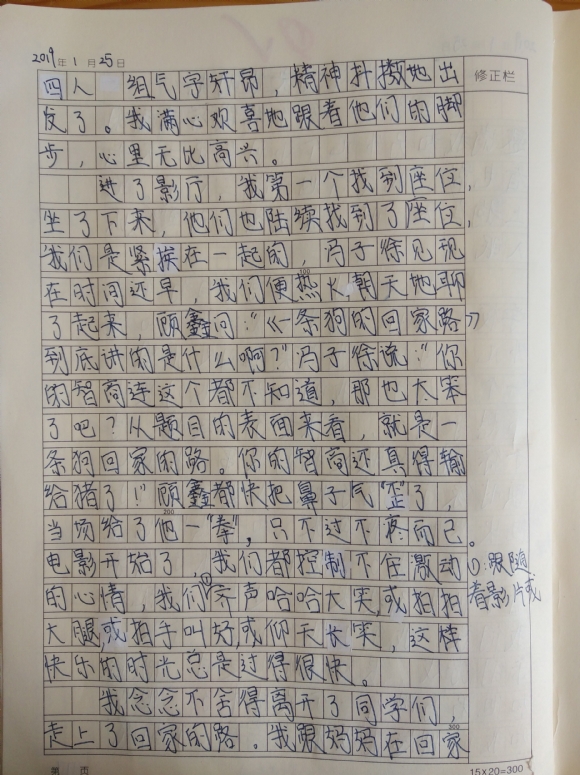 2019年1月25日
修正栏
四人一组气宇轩昂，精神抖擞地出
发了。我满心欢喜地跟着他们的脚
步，心里无比高兴。
进了影厅，我第一个找到座位，
坐了下来，他们也陆续找到了座位，
我们是紧挨在一起的，冯子徐见现
在时间还早，我们便热火朝天地聊
100
了起来，顾鑫问：“《一条狗的回家路》
到底讲的是什么啊？”冯子徐说：“你
的智商连这个都不知道，那也太笨
了吧？从题目的表面来看，就是一
条狗回家的路。你的智商还真得输
给猪了！”顾鑫都快把鼻子气“歪”了，
200
当场给了他一“拳”，只不过不疼而已。
电影开始了，我们都控制不住激动
的心情，我们①齐声哈哈大笑，或拍拍
大腿，或拍手叫好，或仰天长笑，这样
快乐的时光总是过得很快。
①：跟随
着影片或
我念念不舍得离开了同学们，
走上了回家的路。我跟妈妈在回家
300
第 页
15×20=300